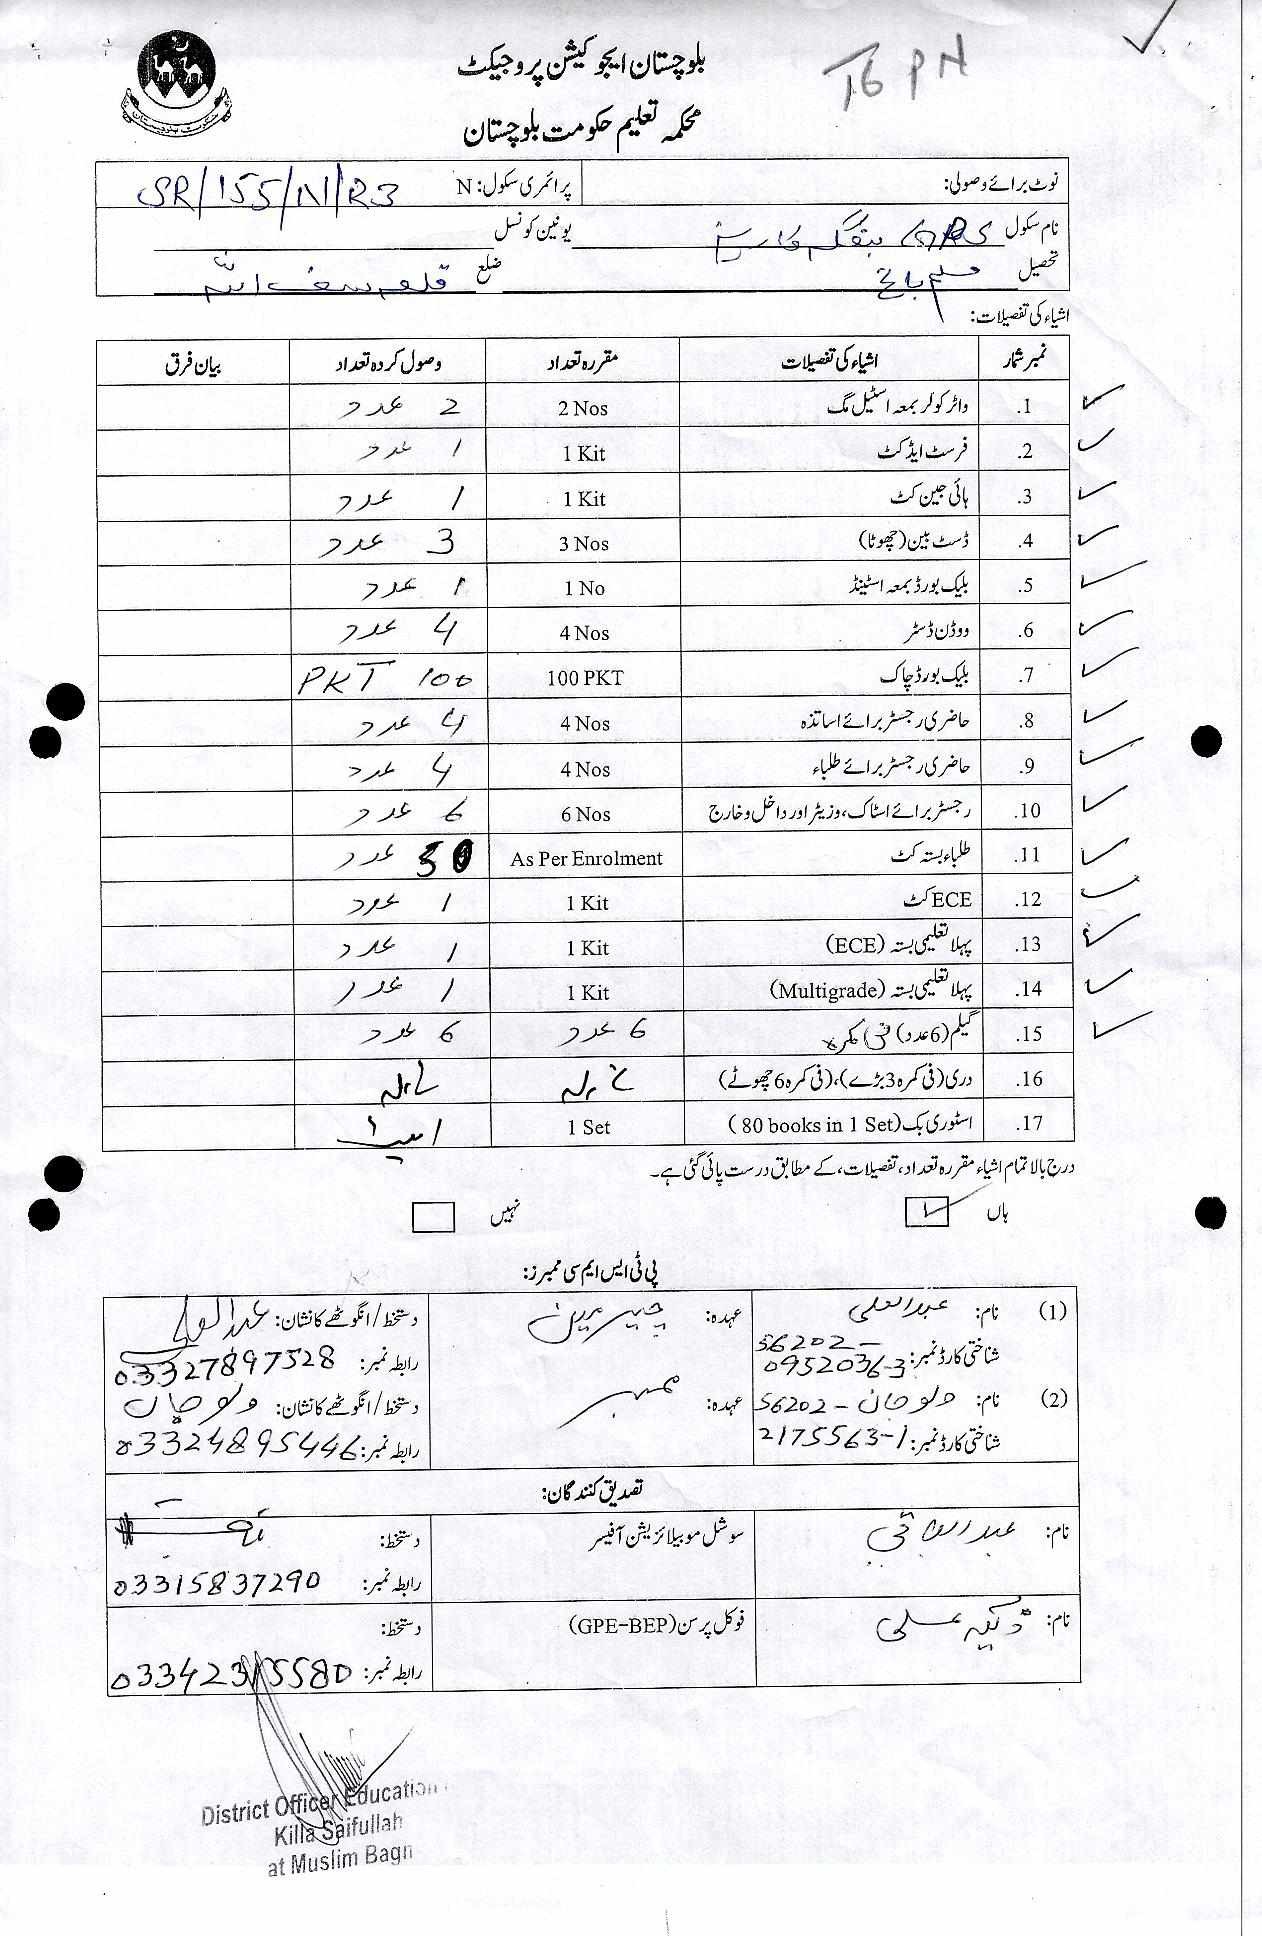 بلوچستان ایجوکیشن پروجیکٹ
محکمہ تعلیم حکومت بلوچستان
T6 PN
نوٹ برائے وصولی: پرائمری سکول: N SR/155/N/R3
نام سکول GPS یونین کونسل
تحصیل مسلم باغ ضلع قلعہ سیف اللہ
اشیاء کی تفصیلات:
نمبر شمار اشیاء کی تفصیلات مقررہ تعداد وصول کردہ تعداد بیان فرق
1. واٹر کولر بمعہ اسٹیل مگ 2 Nos 2 عدد
2. فرسٹ ایڈ کٹ 1 Kit 1 عدد
3. ہائی جین کٹ 1 Kit 1 عدد
4. ڈسٹ بین (چھوٹا) 3 Nos 3 عدد
5. بلیک بورڈ بمعہ اسٹینڈ 1 No 1 عدد
6. ووڈن ڈسٹر 4 Nos 4 عدد
7. بلیک بورڈ چاک 100 PKT 100 PKT
8. حاضری رجسٹر برائے اساتذہ 4 Nos 4 عدد
9. حاضری رجسٹر برائے طلباء 4 Nos 4 عدد
10. رجسٹر برائے اسٹاک، وزیٹر اور داخل و خارج 6 Nos 6 عدد
11. طلباء بستہ کٹ As Per Enrolment 50 عدد
12. ECE کٹ 1 Kit 1 عدد
13. پہلا تعلیمی بستہ (ECE) 1 Kit 1 عدد
14. پہلا تعلیمی بستہ (Multigrade) 1 Kit 1 عدد
15. گلیم (6 عدد) فی کمرہ 6 عدد 6 عدد
16. دری (فی کمرہ 3 بڑے)، (فی کمرہ 6 چھوٹے)
17. اسٹوری بک (80 books in 1 Set) 1 Set 1 سیٹ
درج بالا تمام اشیاء مقررہ تعداد، تفصیلات، کے مطابق درست پائی گئی ہے۔
ہاں نہیں
پی ٹی ایس ایم سی ممبرز:
(1) نام: عبدالعلی عہدہ: چیئرمین دستخط/انگوٹھے کا نشان: عبدالعلی
شناختی کارڈ نمبر: 56202-0952036-3 رابطہ نمبر: 03327897528
(2) نام: ولو جان عہدہ: ممبر دستخط/انگوٹھے کا نشان: ولو جان
شناختی کارڈ نمبر: 56202-2175563-1 رابطہ نمبر: 03324895446
تصدیق کنندگان:
نام: عبدالباقی سوشل موبیلائزیشن آفیسر دستخط:
رابطہ نمبر: 03315837290
نام: فوکل پرسن (GPE-BEP) دستخط:
رابطہ نمبر: 03342315580
District Officer Education
Killa Saifullah
at Muslim Bagh